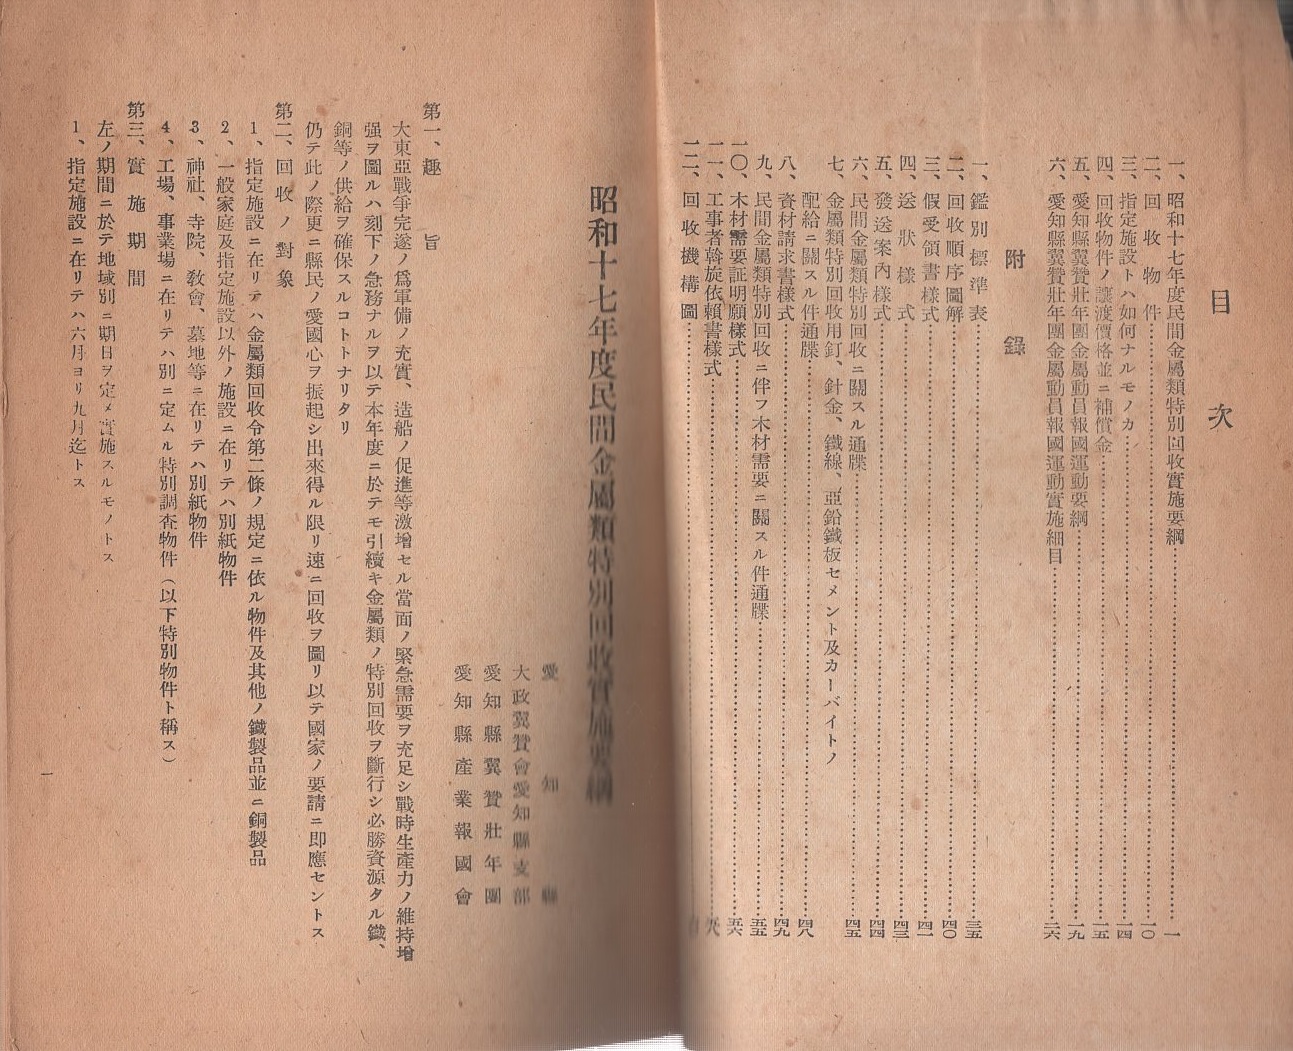 目次
一、昭和十七年度民間金屬類特別回收實施要綱…………一
二、回收物件…………一〇
三、指定施設トハ如何ナルモノカ…………一四
四、回收物件ノ讓渡價格並ニ補償金…………一五
五、愛知縣翼贊壯年團金屬動員報國運動要綱…………一九
六、愛知縣翼贊壯年團金屬動員報國運動實施細目…………二六
附錄
一、鑑別標準表…………三五
二、回收順序圖解…………四〇
三、假受領書樣式…………四一
四、送狀樣式…………四三
五、發送案內樣式…………四四
六、民間金屬類特別回收ニ關スル通牒…………四五
七、金屬類特別回收用釘、針金、鐵線、亞鉛鐵板セメント及カーバイトノ
配給ニ關スル件通牒…………四八
八、資材請求書樣式…………四九
九、民間金屬類特別回收ニ伴フ木材需要ニ關スル件通牒…………五五
一〇、木材需要証明願樣式…………五六
一一、工事者斡旋依賴書樣式…………
一二、回收機構圖…………
昭和十七年度民間金屬類特別回收實施要綱
愛知縣
大政翼贊會愛知縣支部
愛知縣翼贊壯年團
愛知縣產業報國會
第一、趣旨
大東亞戰爭完遂ノ爲軍備ノ充實、造船ノ促進等激增セル當面ノ緊急需要ヲ充足シ戰時生產力ノ維持增
强ヲ圖ルハ刻下ノ急務ナルヲ以テ本年度ニ於テモ引續キ金屬類ノ特別回收ヲ斷行シ必勝資源タル鐵、
銅等ノ供給ヲ確保スルコトトナリタリ
仍テ此ノ際更ニ縣民ノ愛國心ヲ振起シ出來得ル限リ速ニ回收ヲ圖リ以テ國家ノ要請ニ即應セントス
第二、回收ノ對象
1、指定施設ニ在リテハ金屬類回收令第二條ノ規定ニ依ル物件及其他ノ鐵製品並ニ銅製品
2、一般家庭及指定施設以外ノ施設ニ在リテハ別紙物件
3、神社、寺院、敎會、墓地等ニ在リテハ別紙物件
4、工場、事業場ニ在リテハ別ニ定ムル特別調査物件（以下特別物件ト稱ス）
第三、實施期間
左ノ期間ニ於テ地域別ニ期日ヲ定メ實施スルモノトス
1、指定施設ニ在リテハ六月ヨリ九月迄トス
一